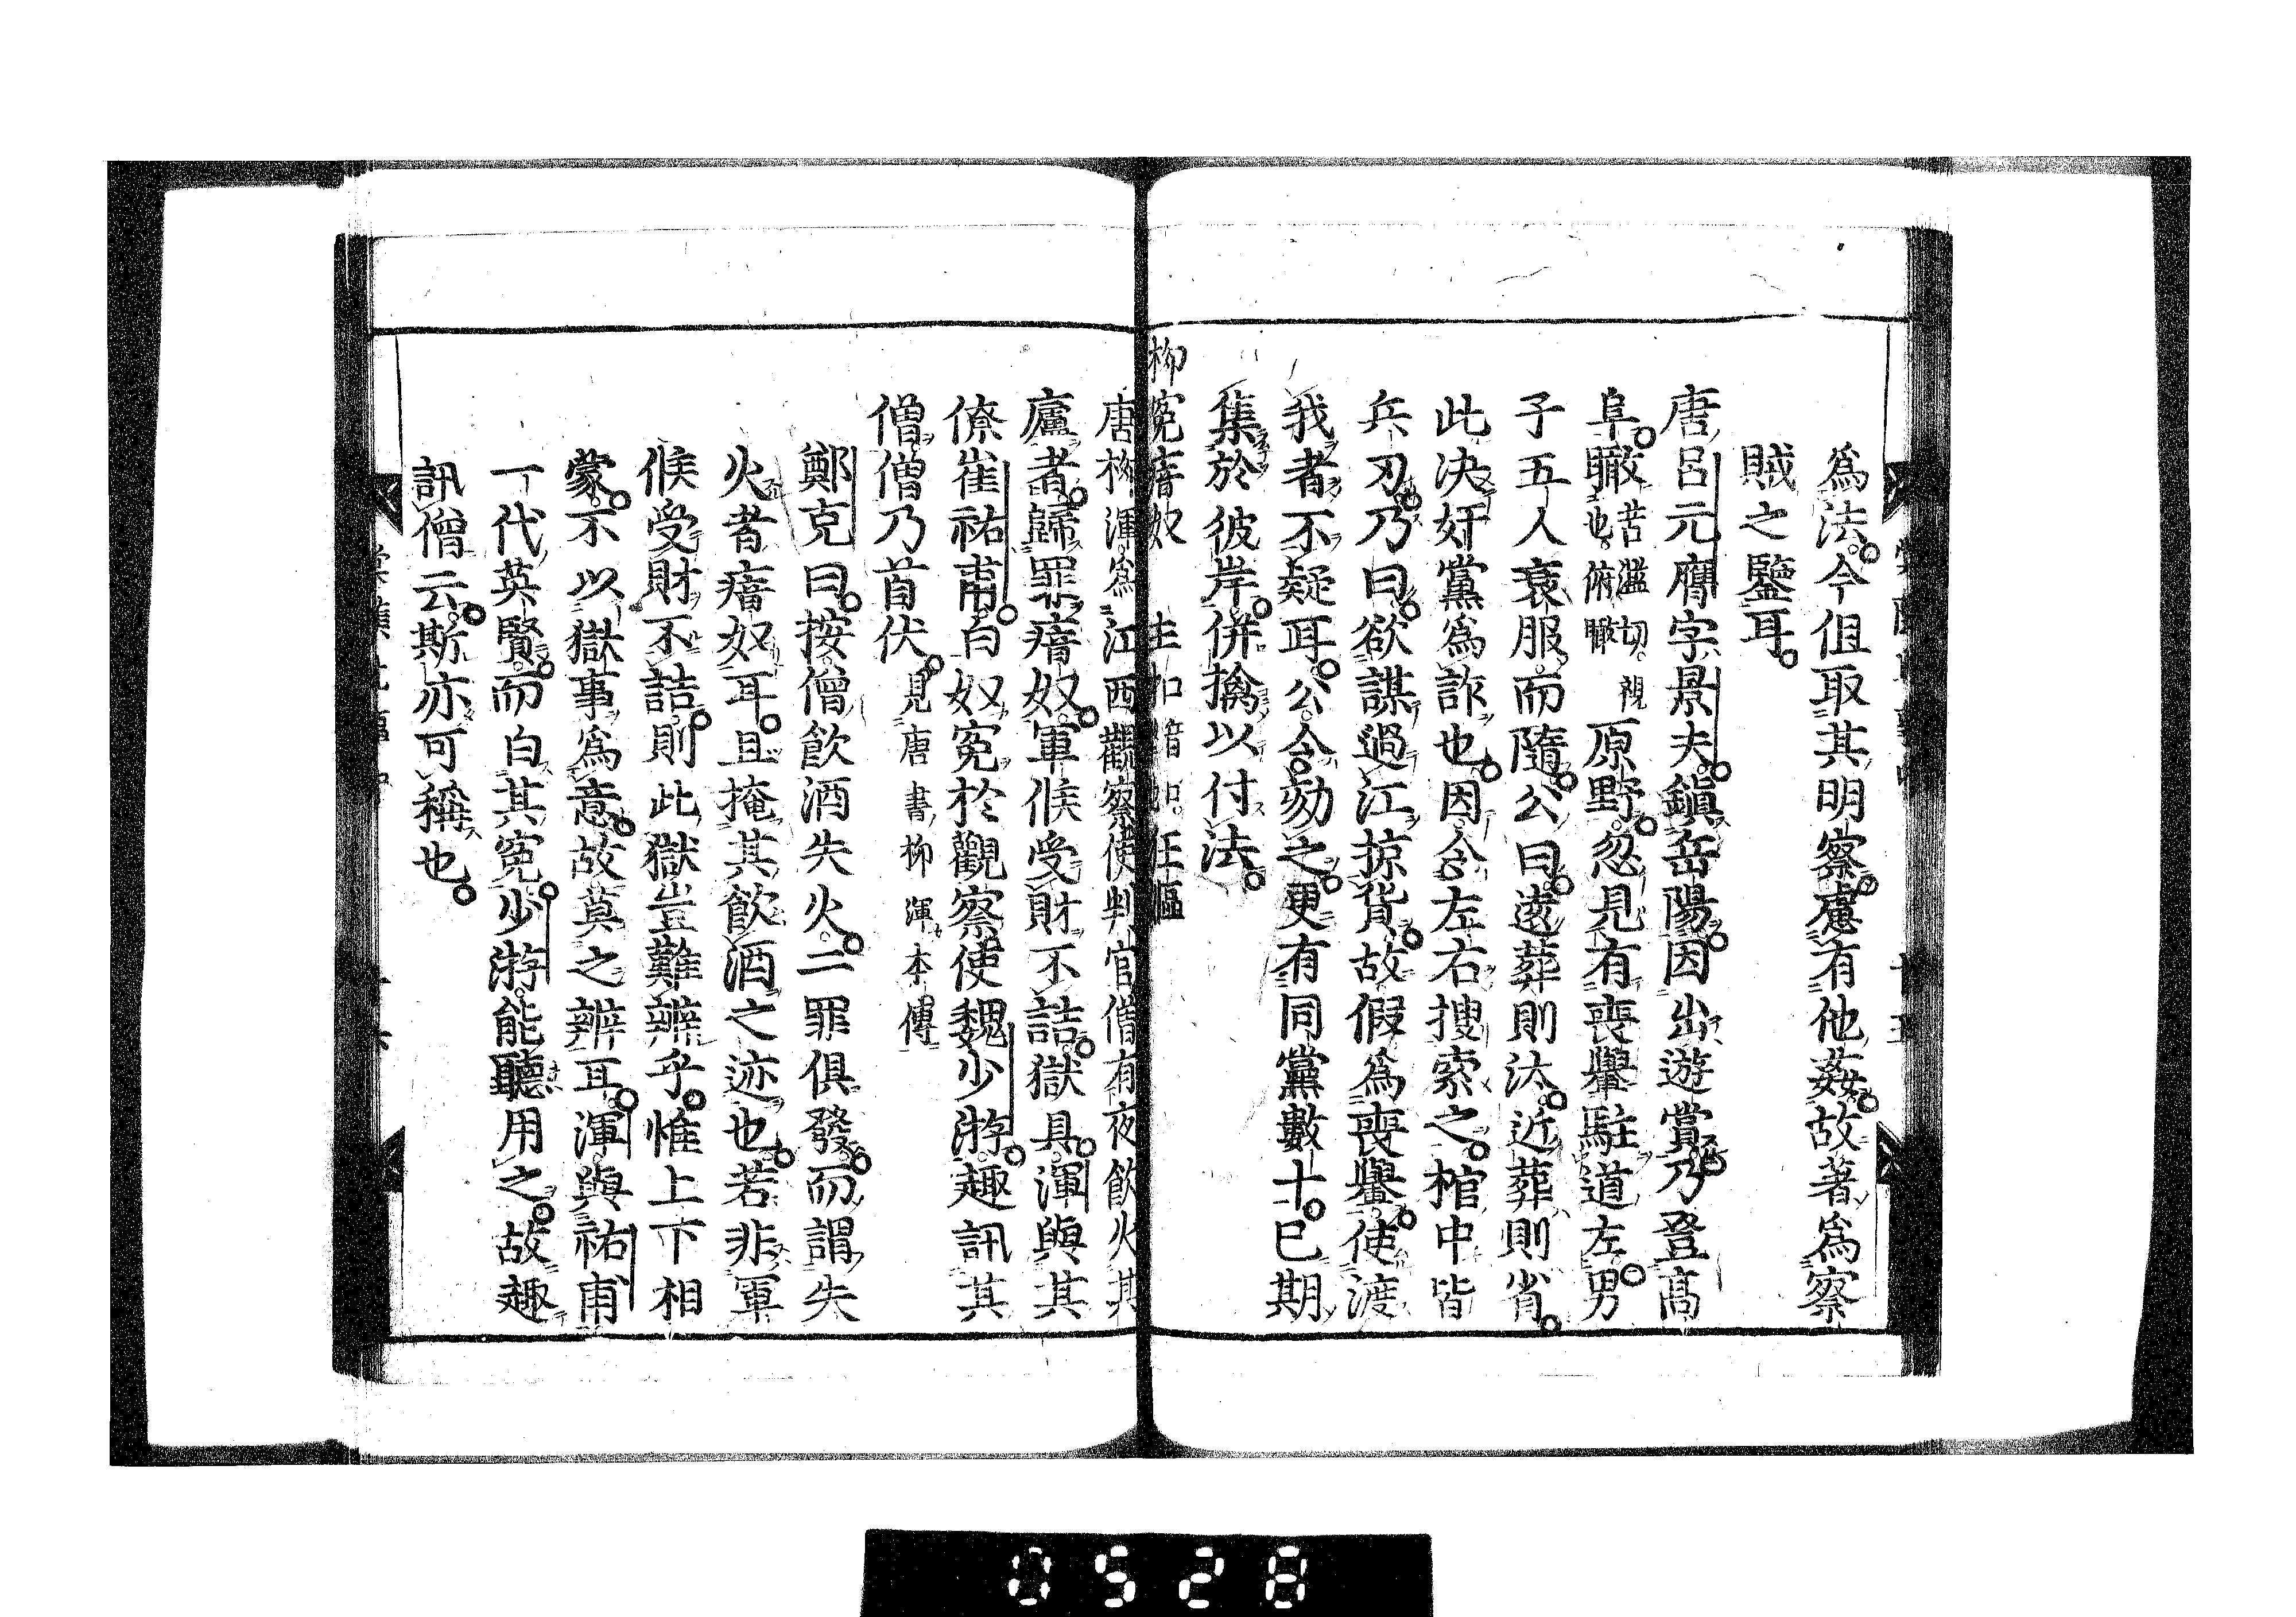 爲法。今伹取其明察。慮有他姦。故著爲察
賊之鑒耳。
唐呂元膺字景夫。鎭岳陽。因出遊賞。乃登髙
阜。瞰苦濫切。視也。俯瞰原野。忽見有喪轝駐道左。男
子五人衰服而隨。公曰。遠葬則汰。近葬則省。
此決奸黨爲詐也。因令左右搜索之。棺中皆
兵刃。乃曰。欲謀過江掠貨。故假爲喪轝。使渡
我者不疑耳。公令劾之。更有同黨數十。已期
集於彼岸。併擒以付法。
柳冤瘖奴
唐柳渾爲江西觀察使判官。僧有夜飲火其
廬者。歸罪瘖奴。軍候受財不詰。獄具。渾與其
僚崔祐甫。白奴冤於觀察使魏少游。趣訊其
僧。僧乃首伏。見唐書柳渾本傳
鄭克曰。按僧飲酒失火。二罪俱發。而謂失
火者瘖奴耳。且掩其飲酒之迹也。若非軍
候受財不詰。則此獄豈難辨乎。惟上下相
蒙。不以獄事爲意。故莫之辨耳。渾與祐甫
一代英賢。而白其冤。少游能聽用之。故趣
訊僧云。斯亦可稱也。
0528